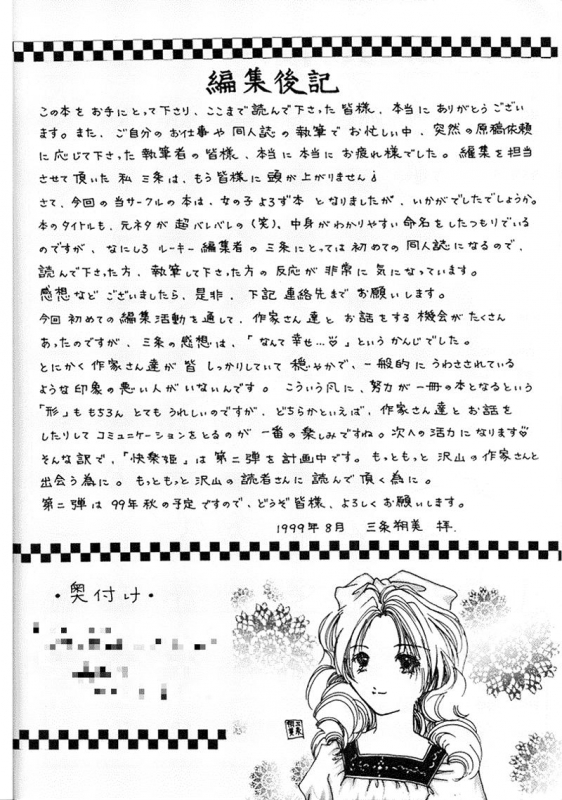 編集後記
この本をお手にとって下さり、ここまで読んで下さった皆様、本当にありがとうござい
ます。また、ご自分のお仕事や同人誌の執筆でお忙しい中、突然の原稿依頼
に応じて下さった執筆者の皆様、本当に本当にお疲れ様でした。編集を担当
させて頂いた私 三条は、もう皆様に頭が上がりません!
さて、今回の当サークルの本は、女の子よろず本となりましたが、いかがでしたでしょうか。
本のタイトルも、元ネタが超バレバレの(笑)、中身がわかりやすい命名をしたつもりでいる
のですが、なにしろルーキー編集者の三条にとっては初めての同人誌になるので、
読んで下さった方、執筆して下さった方の反応が非常に気になっています。
感想などございましたら、是非、下記連絡先までお願いします。
今回初めての編集活動を通して、作家さん達とお話をする機会がたくさん
あったのですが、三条の感想は、「なんて幸せ…♡」というかんじでした。
とにかく作家さん達が皆しっかりしていて穏やかで、一般的にうわさされている
ような印象の悪い人がいないんです。こういう風に、努力が一冊の本となるという
「形」ももちろんとてもうれしいのですが、どちらかといえば、作家さん達とお話を
したりしてコミュニケーションをとるのが一番の楽しみですね。次への活力になります♡
そんな訳で、「快楽姫」は第二弾を計画中です。もっともっと沢山の作家さんと
出会う為に。もっともっと沢山の読者さんに読んで頂く為に。
第二弾は99年秋の予定ですので、どうぞ皆様、よろしくお願いします。
1999年8月 三条朔美 拝.
・奥付け・